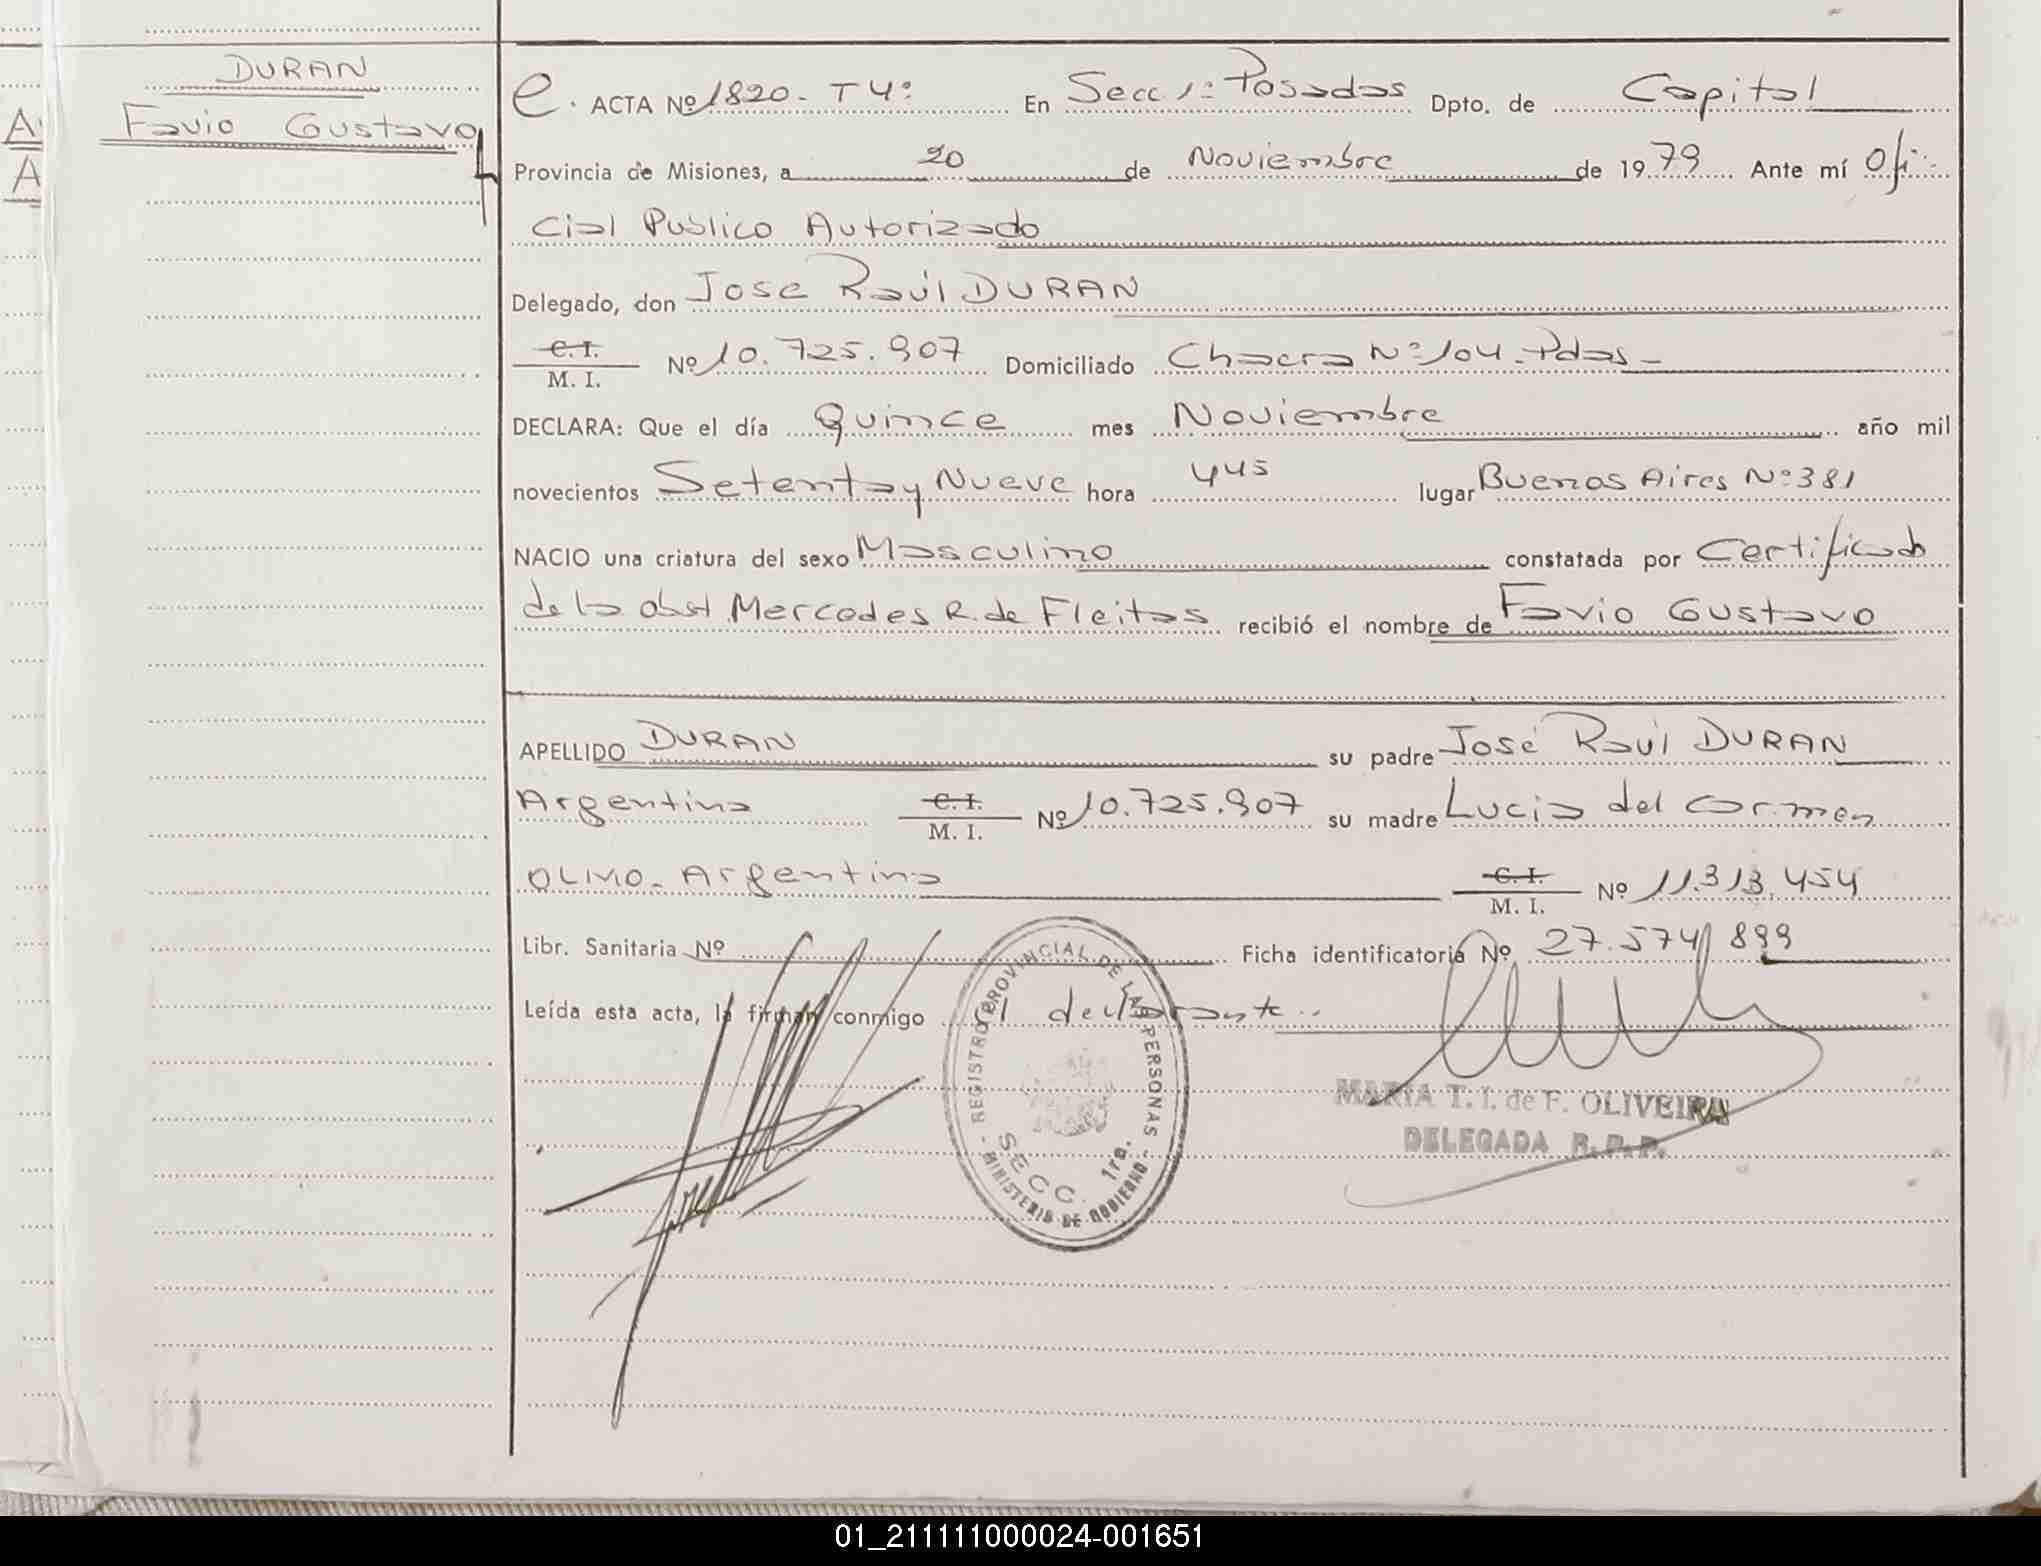 DURAN
Favio Gustavo
A
A
e. ACTA Nº 1820 - T 4º En Secc 1º Posadas Dpto. de Capital
Provincia de Misiones, a 20 de Noviembre de 1979 Ante mí Ofi-
cial Publico Autorizado
Delegado, don Jose Raúl DURAN
C. I.
M. I. Nº 10.725.907 Domiciliado Chacra Nº 104 - Pdas -
DECLARA: Que el día Quince mes Noviembre año mil
novecientos Setenta y Nueve hora 445 lugar Buenos Aires Nº 381
NACIO una criatura del sexo Masculino constatada por Certificado
de la obst. Mercedes R. de Fleitas recibió el nombre de Favio Gustavo
APELLIDO DURAN su padre José Raúl DURAN
Argentina C. I.
M. I. Nº 10.725.907 su madre Lucia del Carmen
OLIVO - Argentina C. I.
M. I. Nº 11.313.454
Libr. Sanitaria Nº Ficha identificatoria Nº 27.574 899
Leída esta acta, la firman conmigo el declarante..
REGISTRO PROVINCIAL DE LAS PERSONAS
SECC. 1ra.
MINISTERIO DE GOBIERNO
MARIA T. I. de F. OLIVEIRA
DELEGADA R. P. P.
01_211111000024-001651